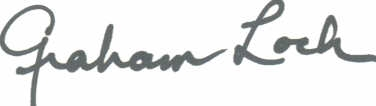 Graham Lock